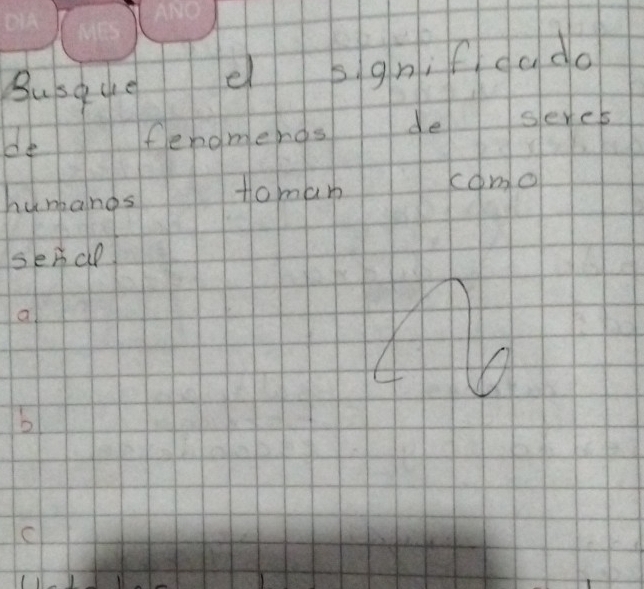 DIA MES AÑO
Busque el significado
de fenomenos de seres
humanos toman como
señal.
a
b
c